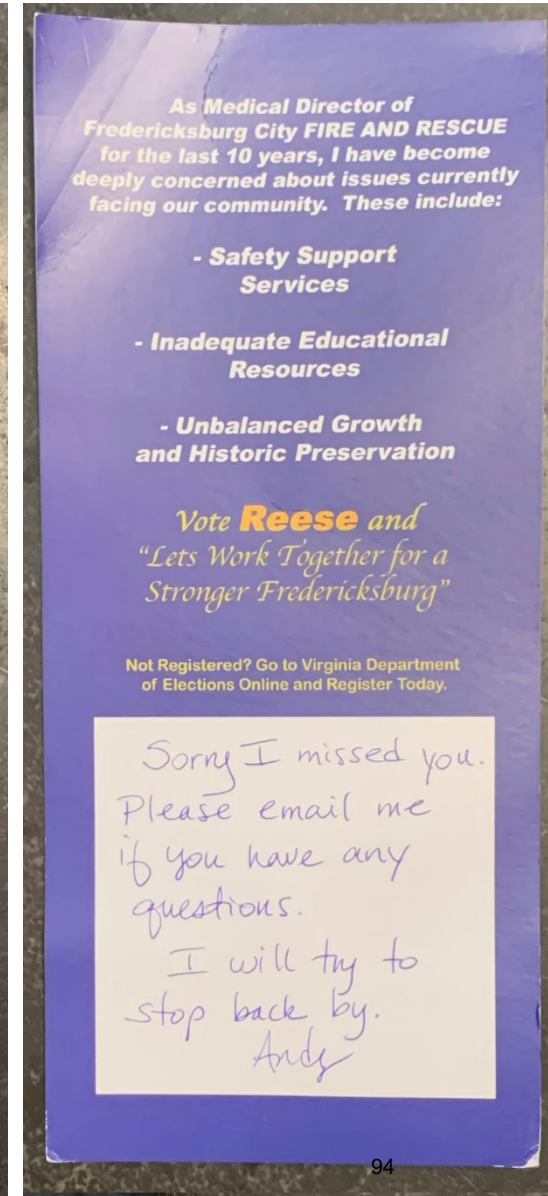 As Medical Director of
Fredericksburg City FIRE AND RESCUE
for the last 10 years, I have become
deeply concerned about issues currently
facing our community. These include:
- Safety Support
Services
- Inadequate Educational
Resources
- Unbalanced Growth
and Historic Preservation
Vote Reese and
“Lets Work Together for a
Stronger Fredericksburg”
Not Registered? Go to Virginia Department
of Elections Online and Register Today.
Sorry I missed you.
Please email me
if you have any
questions.
I will try to
stop back by.
Andy
94